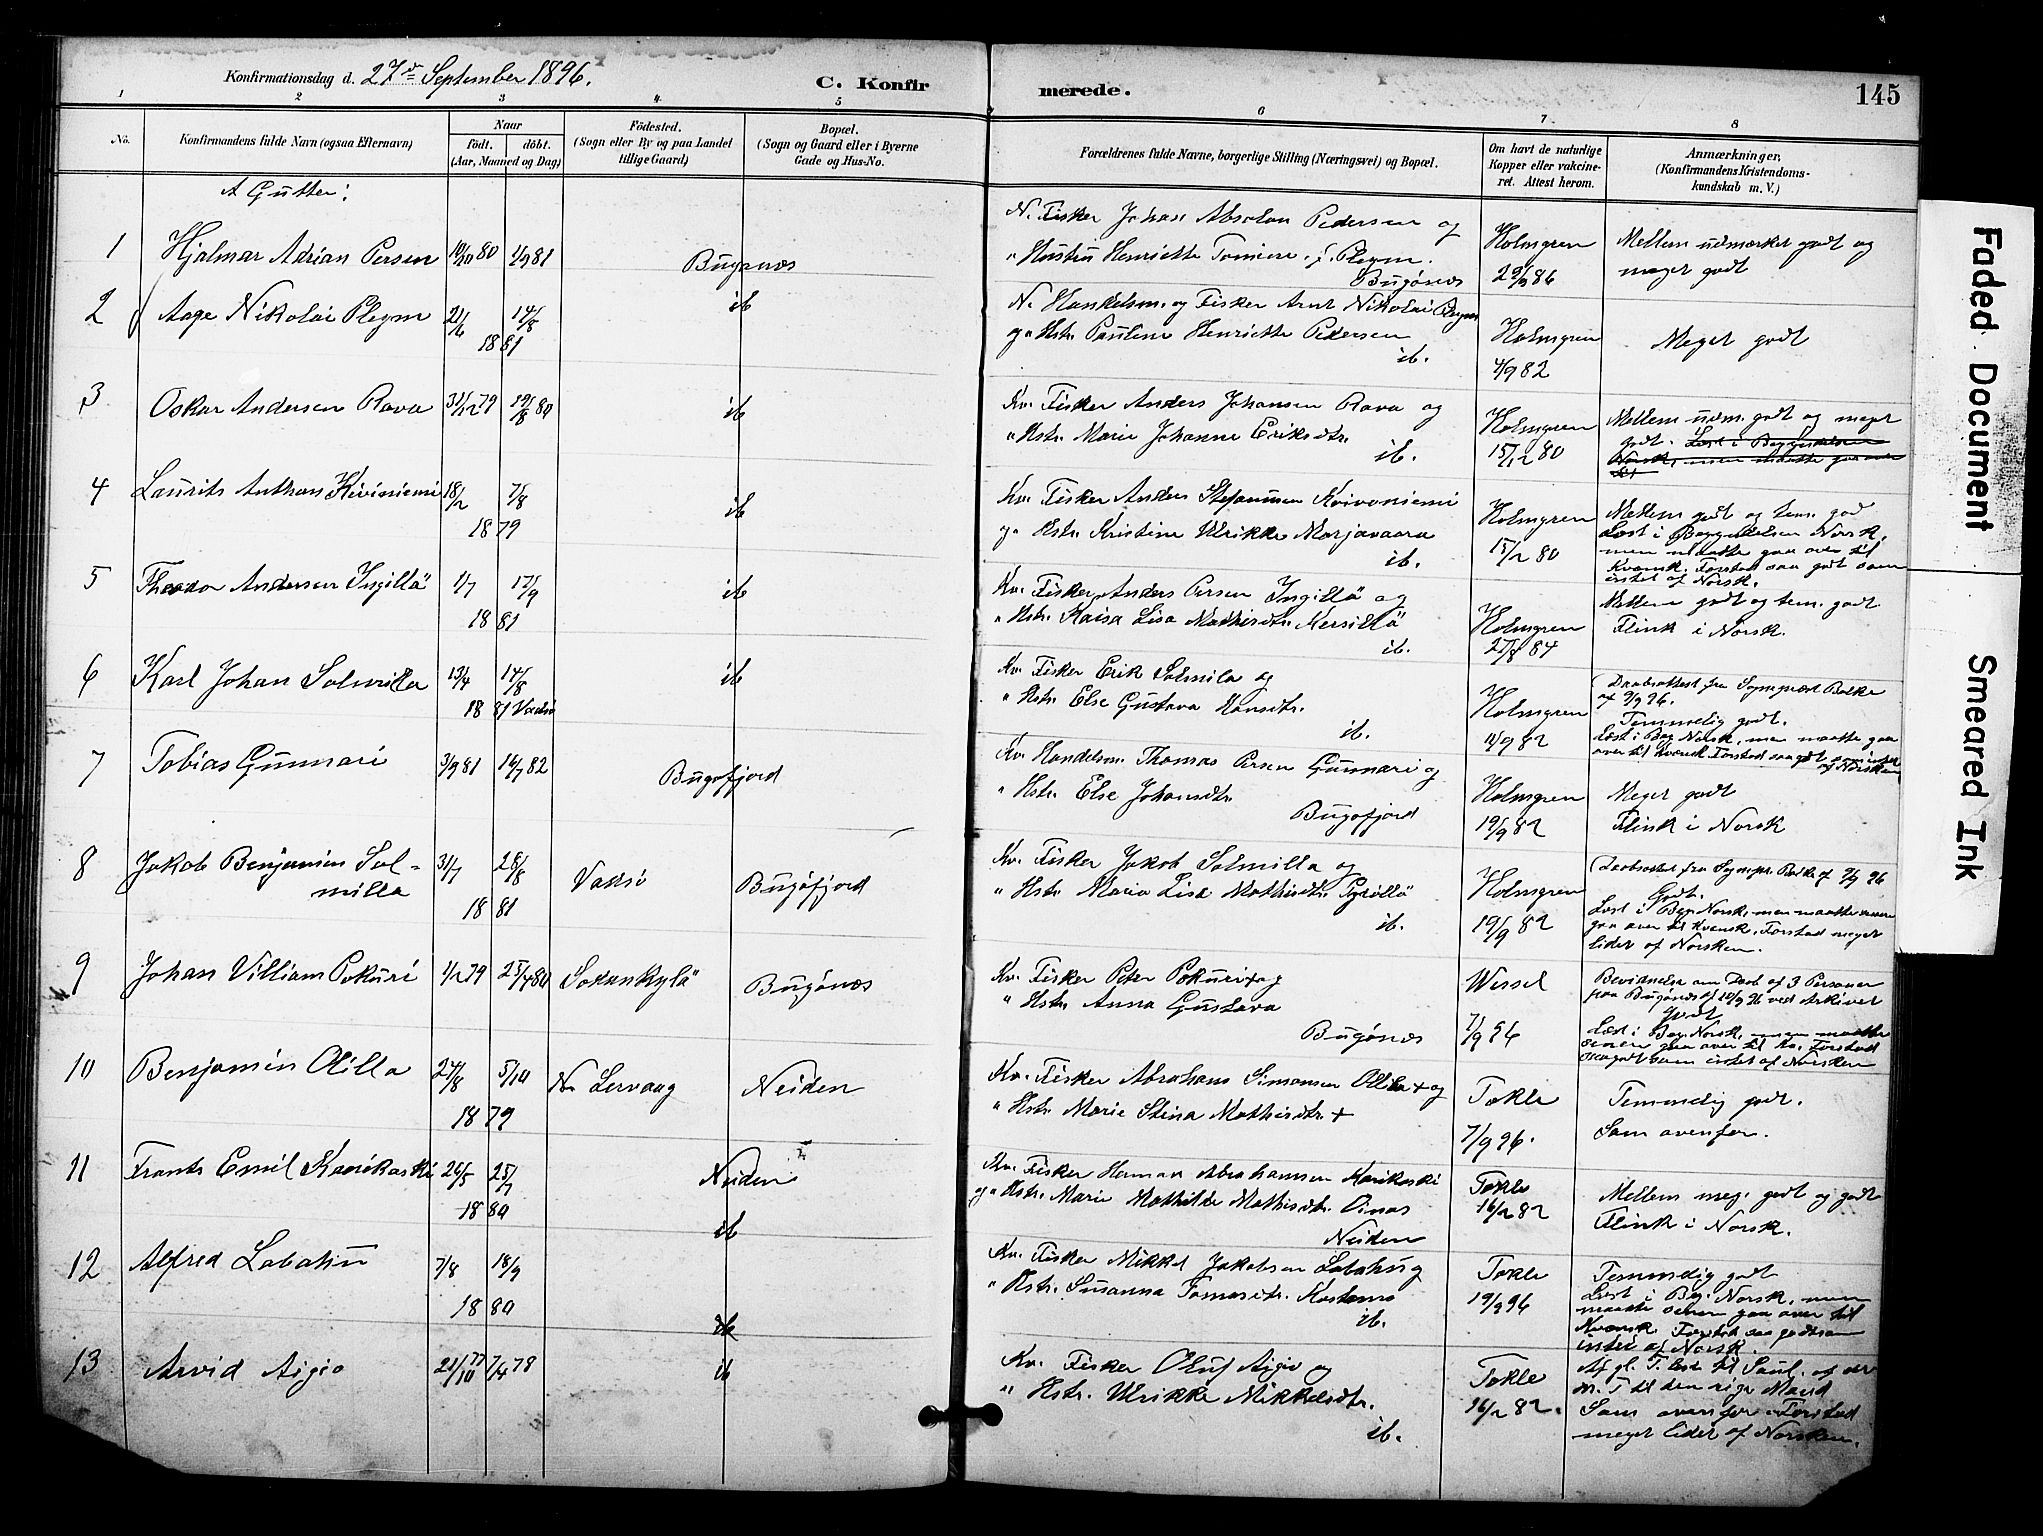 Konfirmationsdag d. 27de September 1896.
C. Konfir
merede.
145
1 2 3 4 5 6 7 8
No.
Konfirmandens fulde Navn (ogsaa Efternavn)
Naar
født. døbt.
(Aar, Maaned og Dag)
Fødested.
(Sogn eller By og paa Landet
tillige Gaard)
Bopæl.
(Sogn og Gaard eller i Byerne
Gade og Hus-No.
Forældrenes fulde Navne, borgerlige Stilling (Næringsvei) og Bopæl.
Om havt de naturlige
Kopper eller vakcine-
ret. Attest herom.
Anmærkninger.
(Konfirmandens Kristendoms-
kundskab m. V.)
A Gutter:
1 Hjalmar Adrian Persen
Bugønæs
N. Fisker Johan Absalon Pedersen og
" Hustru Henriette Tomine f. Pleym.
Bugønæs
Holmgren
29/9 86
Mellem udmærket godt og
meget godt
2 Aage Nikolai Pleym 21/6 14/8
1881
ib
N. Handelsm. og Fisker Arnt Nikolai Pleym
og Hstr. Pauline Henriette Pedersen
ib.
Holmgren
4/9 82
Meget godt
3 Oskar Andersen Rava 31/12 79 19/8 80
ib
Kv. Fisker Anders Johansen Rava og
" Hstr. Marie Johanne Eriksdtr.
ib.
Holmgren
15/12 80
Mellem udm. godt og meget
godt. Læst i Begyndelsen
Norsk, men maatte gaa over
til
4 Laurits Anthon Kiviniemi 18/2 7/8
1879
ib
Kv. Fisker Anders Stefanusen Kvivoniemi
og Hstr. Kristine Ulrikke Marjavaara
ib.
Holmgren
15/12 80
Mellem godt og tem. god
Læst i Begyndelsen Norsk,
men maatte gaa over til
Kvænsk. Forstod saa godt som
intet af Norsk.
5 Theodor Andersen Ingillä 1/7 17/9
1881
ib
Kv. Fisker Anders Persen Ingillä og
" Hstr. Kaisa Lisa Mathisdtr. Kersillä
ib.
Holmgren
27/8 84
Mellem godt og tem. godt
Flink i Norsk.
6 Karl Johan Solmila 13/4 14/8
1881 Vadsø
ib
Kv. Fisker Erik Solmila og
" Hstr. Else Gustava Hansdtr.
ib.
Holmgren
11/9 82
(Daabsattest fra Sognepræst Balke
af 9/9 96.
Temmelig godt.
Læst i Beg. Norsk, men maatte gaa
over til kvænsk. Forstod saa godt som intet
af Norsken
7 Tobias Gunnari 3/9 81 16/7 82
Bugøfjord
Kv. Handelsm. Thomas Persen Gunnari og
" Hstr. Else Johansdtr.
Bugøfjord
Holmgren
19/9 82
Meget godt
Flink i Norsk
8 Jakob Benjamin Sol-
milla
31/7 28/8
1881
Vadsø
Bugøfjord
Kv. Fisker Jakob Solmilla og
" Hstr. Maria Lisa Mathisdtr. Pyröllä
ib.
Holmgren
19/9 82
(Daabsattest fra Sognepr. Balke af 9/9 96
Godt.
Læst i Beg. Norsk, men maatte senere
gaa over til Kvænsk. Forstod meget
lidet af Norsken.
9 Johan Villiam Pokuri 1/12 79 25/4 80
Sodankylä
Bugønæs
Kv. Fisker Peter Pokuri + og
" Hstr. Anna Gustava
Bugønæs
Wessel
7/9 96
Bevidnelse om Daab af 3 Personer
paa Bugønæs af 12/9 96 ved Arkivet
Godt
Læst i Beg. Norsk, men maatte
senere gaa over til kv. Forstod
saagodt som intet af Norsken
10 Benjamin Olilla 24/8 5/10
1879
N. Lervaag
Neiden
Kv. Fisker Abraham Simonsen Ollila + og
" Hstr. Marie Stina Mathisdtr. +
Tokle
7/9 96.
Temmelig godt.
Som ovenfor.
11 Frants Emil Karikoski 26/5 25/7
1880
Neiden
Kv. Fisker Herman Abrahamsen Karikoski
og Hstr. Marie Mathilde Mathisdtr. Oinas
Neiden
Tokle
16/12 82
Mellem meg. godt og godt
Flink i Norsk.
ib
12 Alfred Labahu 7/8 18/9
1880
ib
Kv. Fisker Mikkel Jakobsen Labahu og
" Hstr. Susanna Tomasdtr. Kostamo
ib.
Tokle
19/9 96
Temmelig godt
Læst i Beg. Norsk, men
maatte senere gaa over til
Kvænsk. Forstod saa godtsom
intet af Norsk.
13 Arvid Aigio 21/10 77 7/4 78
ib
Kv. Fisker Oluf Aigio og
" Hstr. Ulrikke Mikkelsdtr.
ib.
Tokle
16/12 82.
Af gl. T. læst til Saul. af det
n. T til den rige Mand
Som ovenfor. Forstod
meget lidet af Norsken.
Faded Document
Smeared Ink